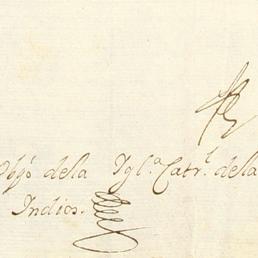 Obpô dela Igl.ª Catr.l dela
Indios.